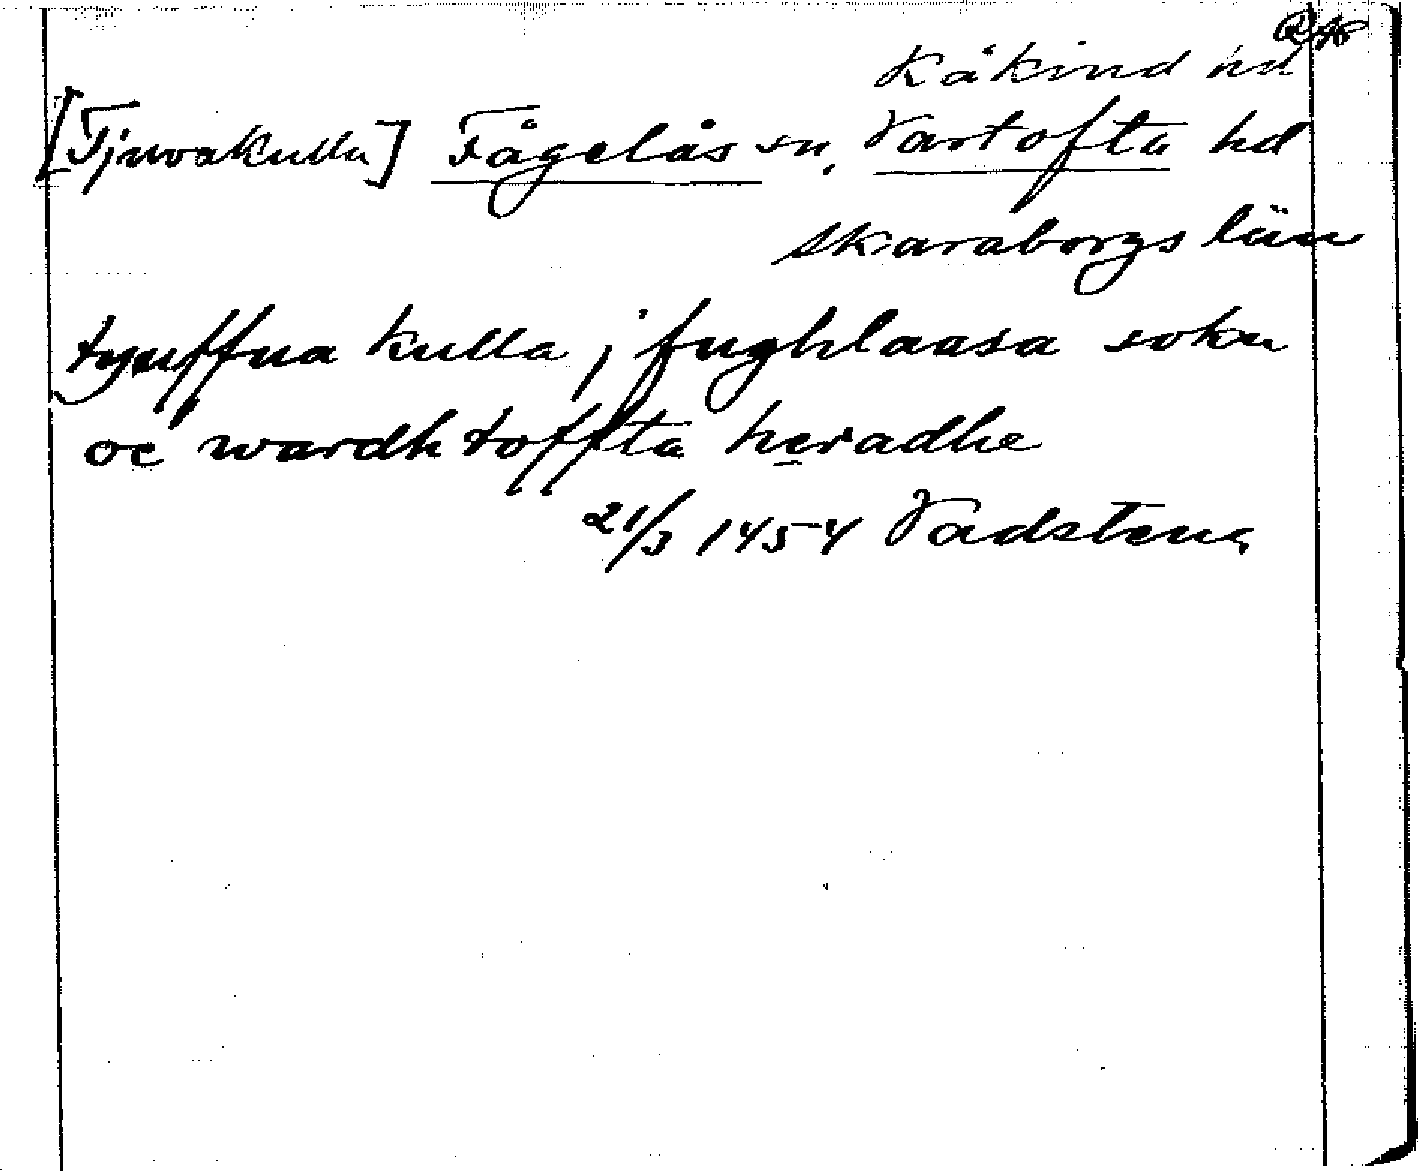 Kåkind hd
[Tjuvakulla] Fågelås sn, Vartofta hd
Skaraborgs län
tyuffua kulla j fughlaasa sokn
oc wardhtoffta heradhe
21/3 1454 Vadstena